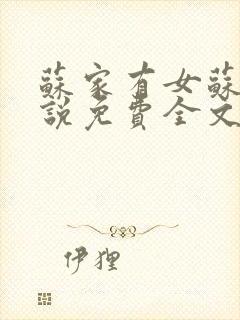 蘇家有女蘇
說免費全文
伊狸